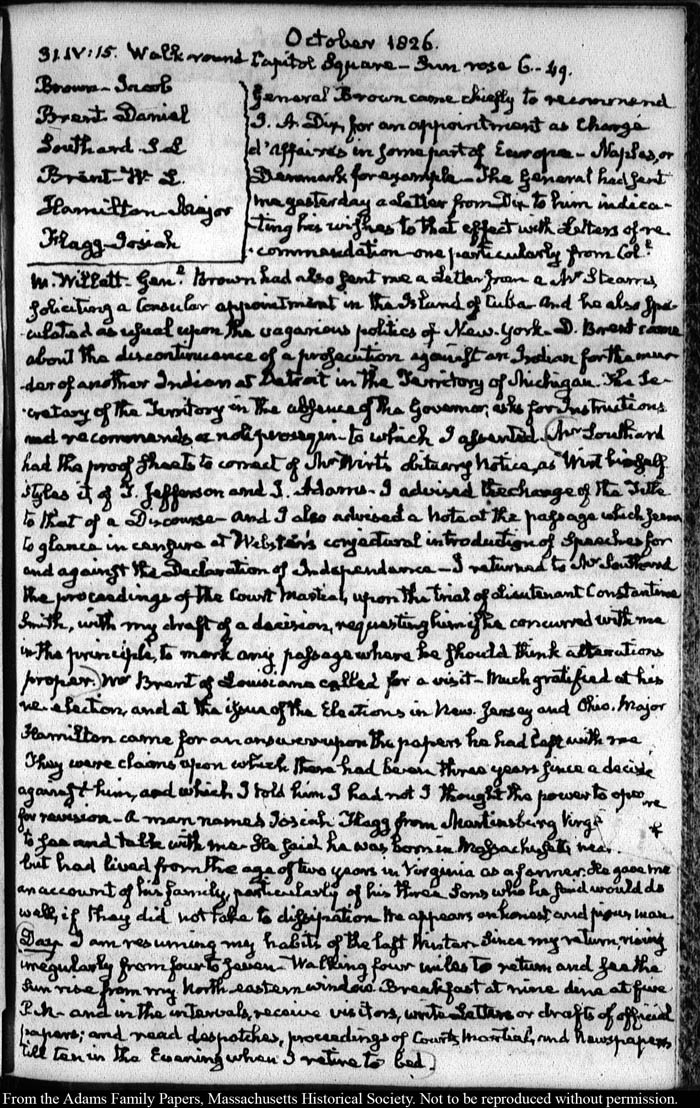 October 1826.
31. IV: 15. Walk round Capitol Square – Sun rose 6.. 49.
Brown – Jacob
Brent Daniel
Southard S. L
Brent – W. L.
Hamilton – Major
Flagg – Josiah
General Brown came chiefly to recommend
J. A Dix, for an appointment as Chargé
d'Affaires in some part of Europe – Naples, or
Denmark for example – The General had sent
me yesterday a Letter from Dix to him indica-
-ting his wishes to that effect with Letters of re
-commendation one particularly from Coll.
M. Willett. Genl. Brown had also sent me a Letter from a Mr Stearns
soliciting a Consular appointment in the Island of Cuba. And he also spe-
culated as usual upon the vagarious politics of New-York – D. Brent came
about the discontinuance of a prosecution against an Indian for the mur-
der of another Indian at Detroit in the Territory of Michigan. The Se-
cretary of the Territory in the absence of the Governor, asks for Instructions
and recommends a noli prosequi – to which I assented. Mr Southard
had the proof sheets to correct of Mr Wirt's obituary Notice, as Wirt himself
styles it of T. Jefferson and J. Adams – I advised the change of the Title
to that of a Discourse – and I also advised a Note at the passage which seems
to glance in censure at Webster's conjectural introduction of Speeches for
and against the Declaration of Independence – I returned to Mr Southard
the proceedings of the Court Martial, upon the trial of Lieutenant Constantine
Smith, with my draft of a decision, requesting him if he concurred with me
in the principle, to mark any passage where he should think alterations
proper. Mr Brent of Louisiana called for a visit – Much gratified at his
re-election, and at the issue of the Elections in New. Jersey and Ohio. Major
Hamilton came for an answer upon the papers he had left with me,
They were claims upon which there had been three years since a
against him, and which I told him I had not I thought the power to
for revision – A man named Josiah Flagg from Martinsburg
to see and talk with me – He said he was born in Massachusetts
but had lived from the age of two years in Virginia as a farmer. He gave me
an account of his family, particularly of his three Sons who he said would do
well, if they did not take to dissipation. He appears an honest and pious man
Day. I am resuming my habits of the last Winter since my return, rising
irregularly from four to seven – Walking four miles to return and see the
Sun rise from my North eastern window. Breakfast at nine dine at five
P.M – and in the intervals, receive visitors, write Letters or drafts of official
papers; and read despatches, proceedings of Courts Martial, and Newspapers
till ten in the Evening when I retire to bed.
From the Adams Family Papers, Massachusetts Historical Society. Not to be reproduced without permission.